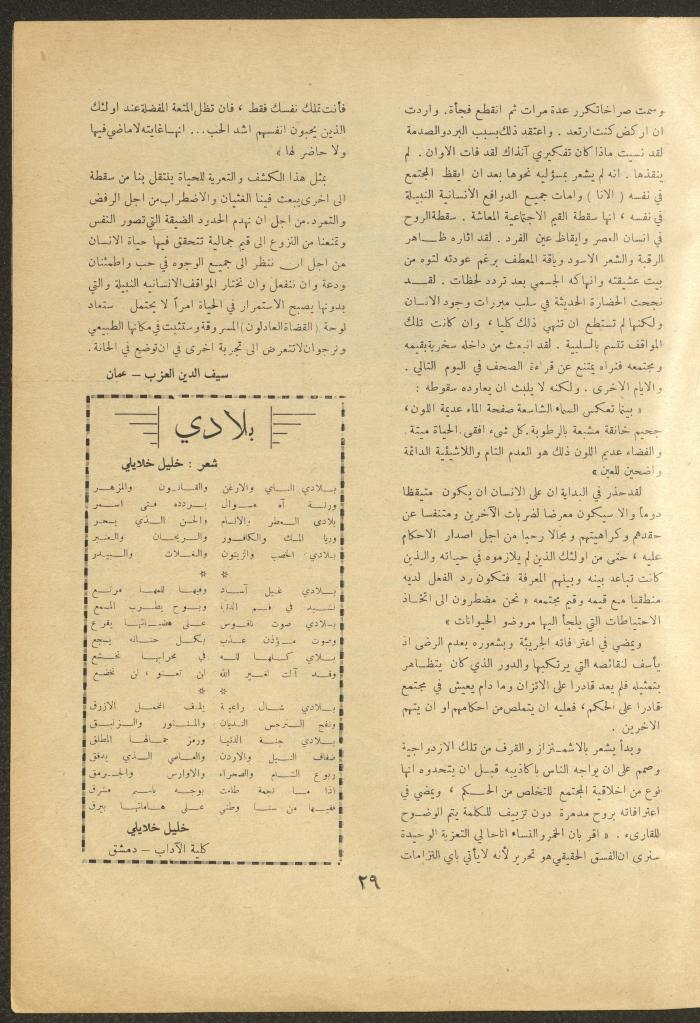 وسمت صراخاتكرر عدة مرات ثم انقطع فجأة . واردت
ان اركض كنت ارتعد . واعتقد ذلك بسبب البرد والصدمة
لقد نسيت ماذا كان تفكيري آنذاك لقد فات الاوان . لم
ينقذها . انه لم يشعر بمسؤليه نحوها بعد ان ايقظ المجتمع
في نفسه ( الانا ) وامات جميع الدوافع الانسانية النبيلة
في نفسه ، انها سقطة القيم الاجتماعية المعاشة . سقطة الروح
في انسان العصر وايقاظ عين الفرد . لقد اثاره ظـاهر
الرقبة والشعر الاسود وياقة المعطف برغم عودته لتوه من
بيت عشيقته وانهاكه الجسمي بعد تردد لحظات . لقـد
نجحت الحضارة الحديثة في سلب مبررات وجود الانسان
ولكنها لم تستطع ان تنهي ذلك كليا ، وان كانت تلك
المواقف تتسم بالسلبية . لقد انبعث من داخله سخرية بقيمه
ومجتمعه فنراه يمتنع عن قراءة الصحف في اليوم التالي .
والايام الاخرى . ولكنه لا يلبث ان يعاوده سقوطه :
« بينما تعكس السماء الشاسعة صفحة الماء عديمة اللون ،
جحيم خانقة مشبعة بالرطوبة . كل شيء افقي . الحياة ميتة .
والفضاء عديم اللون ذلك هو العدم التام واللاشيئية الدائمة
واضحين للعين »
لقد حذر في البداية ان على الانسان ان يكون متيقظا
دوماً والا سيكون معرضا لضربات الآخرين ومتنفسا عن
حقدهم وكراهيتهم ومجالا رحبا من اجل اصدار الاحكام
عليه ، حتى من اولئك الذين لم يلازموه في حياته والذين
كانت تباعد بينه وبينهم المعرفة فتكون رد الفعل لديه
منطقيا مع قيمه وقيم مجتمعه « نحن مضطرون الى اتخـاذ
الاحتياطات التي يلجأ اليها مروضو الحيوانات »
ويمضي في اعترافاته الجريئة وبشعوره بعدم الرضى اذ
يأسف لنقائصه التي يرتكبها والدور الذي كان يتظـاهر
بتمثيله فلم يعد قادرا على الاتزان وما دام يعيش في مجتمع
قادرا على الحكم ، فعليه ان يتملص من احكامهم او ان يتهم
الاخرين .
وبدأ يشعر بالاشمئزاز والقرف من تلك الازدواجية
وصمم على ان يواجه الناس باكاذيبه قبل ان يتحدوه انها
نوع من اخلاقية المجتمع للتخلص من الحـكم ، ويمضي في
اعترافاته بروح مدمرة دون تزييف للكلمة يتم الوضـوح
للقارىء . « اقر بان الخمر والنساء اتاحا لي التعزية الوحيدة
سنرى ان الفسق الحقيقي هو تحرير لأنه لا يأتي باي التزامات
فأنت تملك نفسك فقط ، فان تظل المتعة المفضلة عند اولئك
الذين يحبون انفسهم اشد الحب ... انهـا غابته لا ماضي فيها
ولا حاضر لها »
بمثل هذا الكشف والتعرية للحياة ينتقل بنا من سقطة
الى اخرى يبعث فينا الغثيان والاضطراب من اجل الرفض
والتمرد . من اجل ان نهدم الحدود الضيقة التي تصور النفس
وتمنعنا من النزوع الى قيم جمالية تتحقق فيها حياة الانسان
من اجل ان ننظر الى جميع الوجوه في حب واطمئنان
ودعة وان ننفعل وان نختار المواقف الانسانيه النبيلة والتي
بدونها يصبح الاستمرار في الحياة امراً لا يحتمل . ستعاد
لوحة ( القضاة العادلون ) المسروقة وستثبت في مكانها الطبيعي
ونرجو ان لا تتعرض الى تجربة اخرى في ان توضع في الحانة .
سيف الدين العزب – عمان
بلادي
شعر : خليل خلايلي
بـلادي النـاي والارغن والقـانون والمزهـر
ورنـة آه مـوال يـردده فـتى اسمـر
بلادي العطر والانسام والحسن الذي يسحر
وريا المسك والكافور والريحان والعنبر
بلادي الخصب والزيتون والغـلات والبيـدر
* *
بـلادي غيـل آسـاد وفيهـا للمهـا مرتـع
نشيـد في فـم الدنيا وبـوح يطـرب المسمع
بـلادي صوت ناقـوس عـلى هضبـاتهـا يقرع
وصوت مـؤذن عـذب بكـل حنـانه يسجع
بـلادي كـلهـا لله في محرابهـا تخشـع
وقـد آلت لغـير الله ان تعنـو ، ان تخضع
* *
بـلادي شـال راعيـة يلـف المخمـل الازرق
ونفح النـرجس النديان والمنـثور والـزنبـق
بـلادي جنـة الدنيـا ورمز جمـالهـا المطلق
ضفاف النيـل والاردن والعـاصي الـذي يدفق
ربوع الشـام والصحراء والاوراس والجـرمق
اذا مـا نجمة طلعت بوجـه باسـم مشرق
ففيهـا من سنـا وطني عـلى هـاماتهـا بيرق
خليل خلايلي
كلية الآداب – دمشق
٢٩